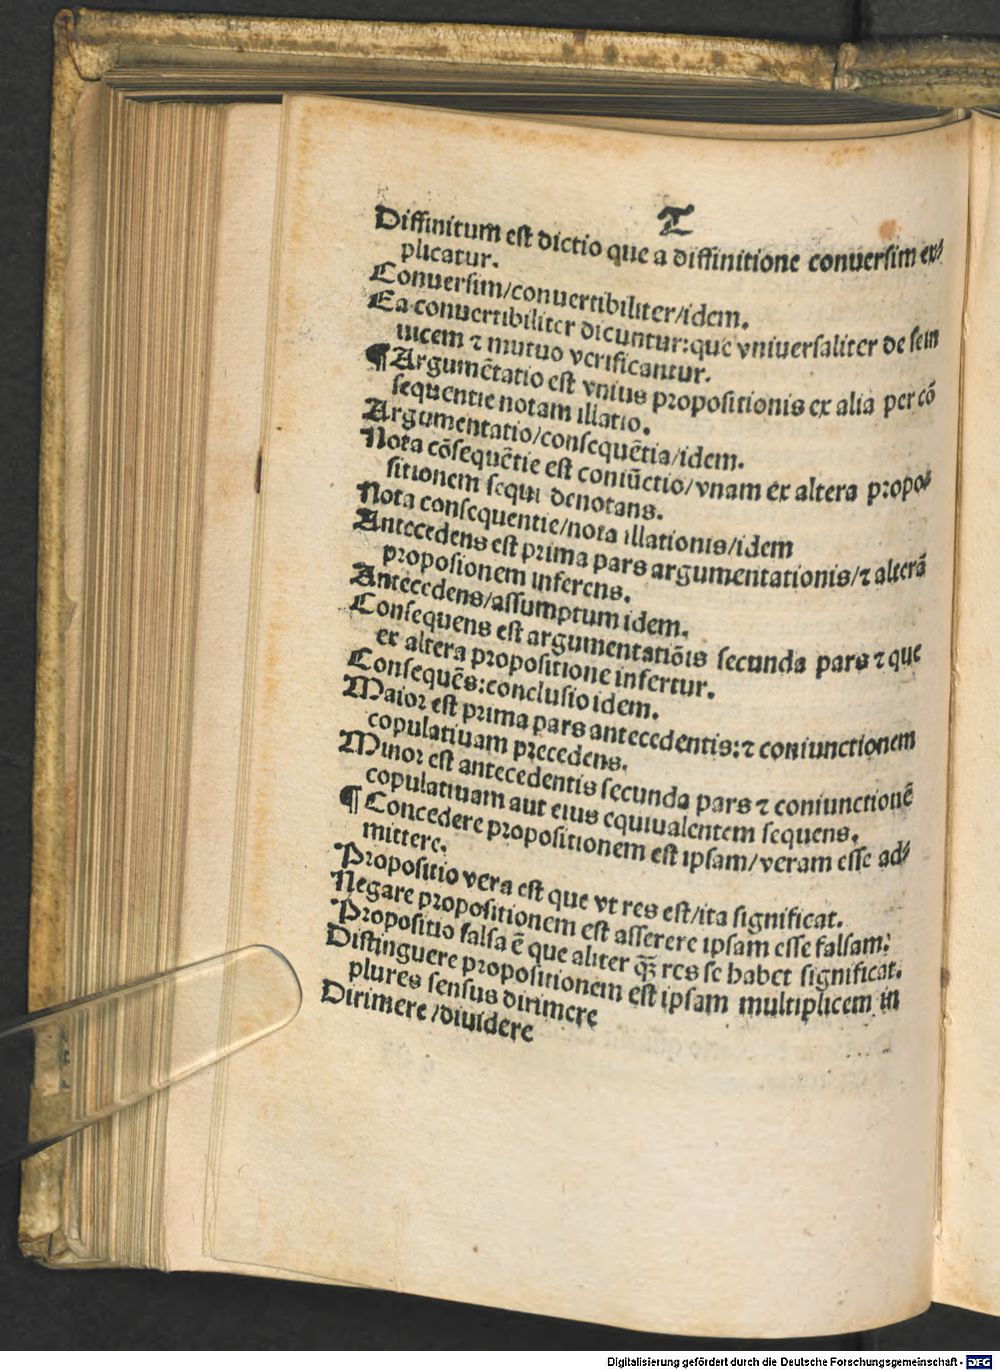 T
Diffinitum est dictio que a diffinitione conuersim ex⸗
plicatur.
Conuersim/conuertibiliter/idem.
Ea conuertibiliter dicuntur:que vniuersaliter de sein
uicem ⁊ mutuo verificantur.
¶ Argumētatio est vnius propositionis ex alia per cō
sequentie notam illatio.
Argumentatio/consequētia/idem.
Nota cōsequētie est coniūctio/vnam ex altera propo⸗
sitionem sequi denotans.
Nota consequentie/nota illationis/idem
Antecedens est prima pars argumentationis/⁊ alterā
proposionem inferens.
Antecedens/assumptum idem.
Consequens est argumentatiōis secunda pars ⁊ que
ex altera propositione infertur.
Consequēs:conclusio idem.
Maior est prima pars antecedentis:⁊ coniunctionem
copulatiuam precedens.
Minor est antecedentis secunda pars ⁊ coniunctionē
copulatiuam aut eius equiualentem sequens.
¶ Concedere propositionem est ipsam/veram esse ad⸗
mittere.
Propositio vera est que vt res est/ita significat.
Negare propositionem est asserere ipsam esse falsam:
Propositio falsa ē que aliter qꝫ res se habet significat.
Distinguere propositionem est ipsam multiplicem in
plures sensus dirimere
Dirimere /diuidere
Digitalisierung gefördert durch die Deutsche Forschungsgemeinschaft - DFG